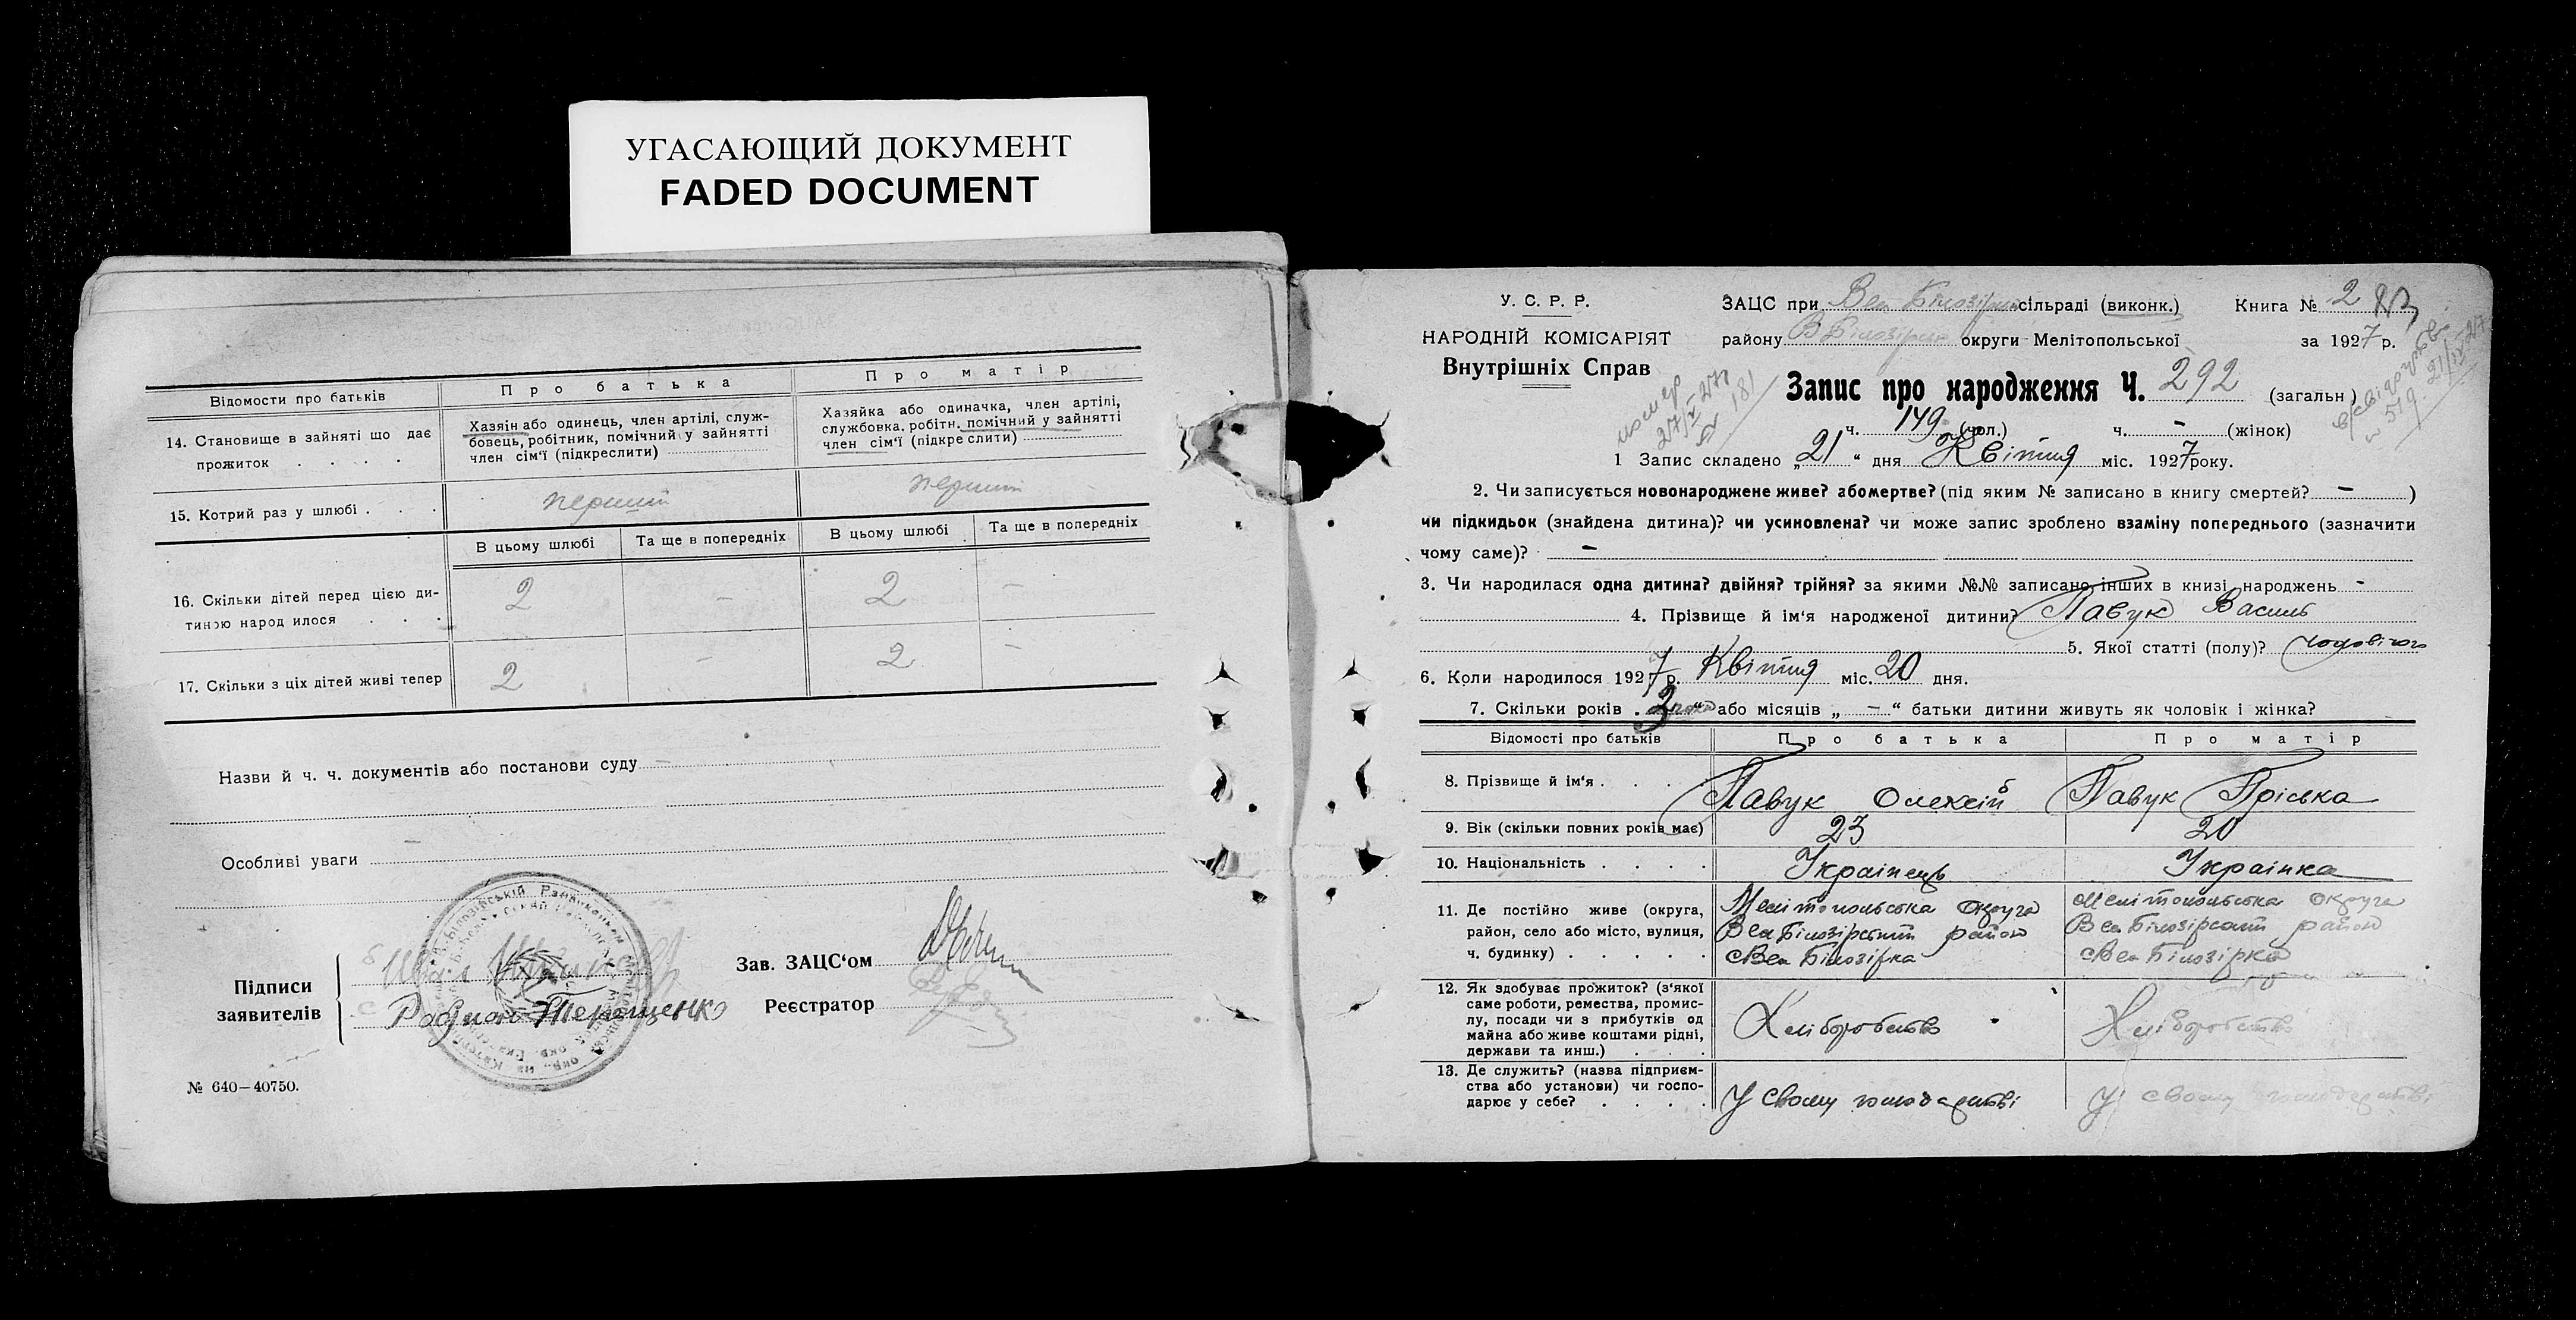 УГАСАЮЩИЙ ДОКУМЕНТ
FADED DOCUMENT
Відомости про батьків
Про батька
Про матір
14. Становище в зайняті що дає прожиток . . . .
Хазяін або одинець, член артілі, служ-
бовець, робітник, помічний у зайнятті
член сім'ї (підкреслити)
Хазяйка або одиначка, член артілі,
службовка, робітн. помічний у зайнятті
член сім'ї (підкреслити)
15. Котрий раз у шлюбі . . .
перший
перший
В цьому шлюбі
Та ще в попередніх
В цьому шлюбі
Та ще в попередніх
16. Скільки дітей перед цією ди-
тиною народилося . . .
2 – 2 –
17. Скільки з ціх дітей живі тепер
2 – 2 –
Назви й ч. ч. документів або постанови суду –
Особливі уваги –
Підписи
заявителів
Терещенко
Зав. ЗАЦС'ом
Реєстратор
№ 640–40750.
У. С. Р. Р.
НАРОДНІЙ КОМІСАРІЯТ
Внутрішніх Справ
ЗАЦС при Вел Білозірській сільраді (виконк.)
Книга № 2
району В Білозірськ округи Мелітопольської
за 1927 р.
Запис про народження Ч. 292 (загальн)
ч. 149 (чол.) ч. - (жінок)
1 Запис складено „21“ дня Квітня міс. 1927 року.
2. Чи записується новонароджене живе? або мертве? (під яким № записано в книгу смертей? – )
чи підкидьок (знайдена дитина)? чи усиновлена? чи може запис зроблено взаміну попереднього (зазначити
чому саме)? –
3. Чи народилася одна дитина? двійня? трійня? за якими №№ записано інших в книзі народжень -
4. Прізвище й ім'я народженої дитини? Павук Василь
5. Якої статті (полу)? чоловічого
6. Коли народилося 1927 р. Квітня міс. 20 дня.
7. Скільки років . 3 або місяців „ – “ батьки дитини живуть як чоловік і жінка?
Відомості про батьків
Про батька
Про матір
8. Прізвище й ім'я . . .
Павук Олексій
Павук Пріська
9. Вік (скільки повних років має)
23
20
10. Національність . . . .
Українець
Українка
11. Де постійно живе (округа,
район, село або місто, вулиця,
ч. будинку) . . . . .
Мелітопольська округа
Вел Білозірський район
с Вел Білозірка
Мелітопольська округа
Вел Білозірський район
с Вел Білозірка
12. Як здобуває прожиток? (з'якої
саме роботи, ремества, промис-
лу, посади чи з прибутків од
майна або живе коштами рідні,
держави та инш.) . . .
Хліборобство
Хліборобство
13. Де служить? (назва підприєм-
ства або установи) чи госпо-
дарює у себе? . . . .
У своему господарстві
У своему господарстві